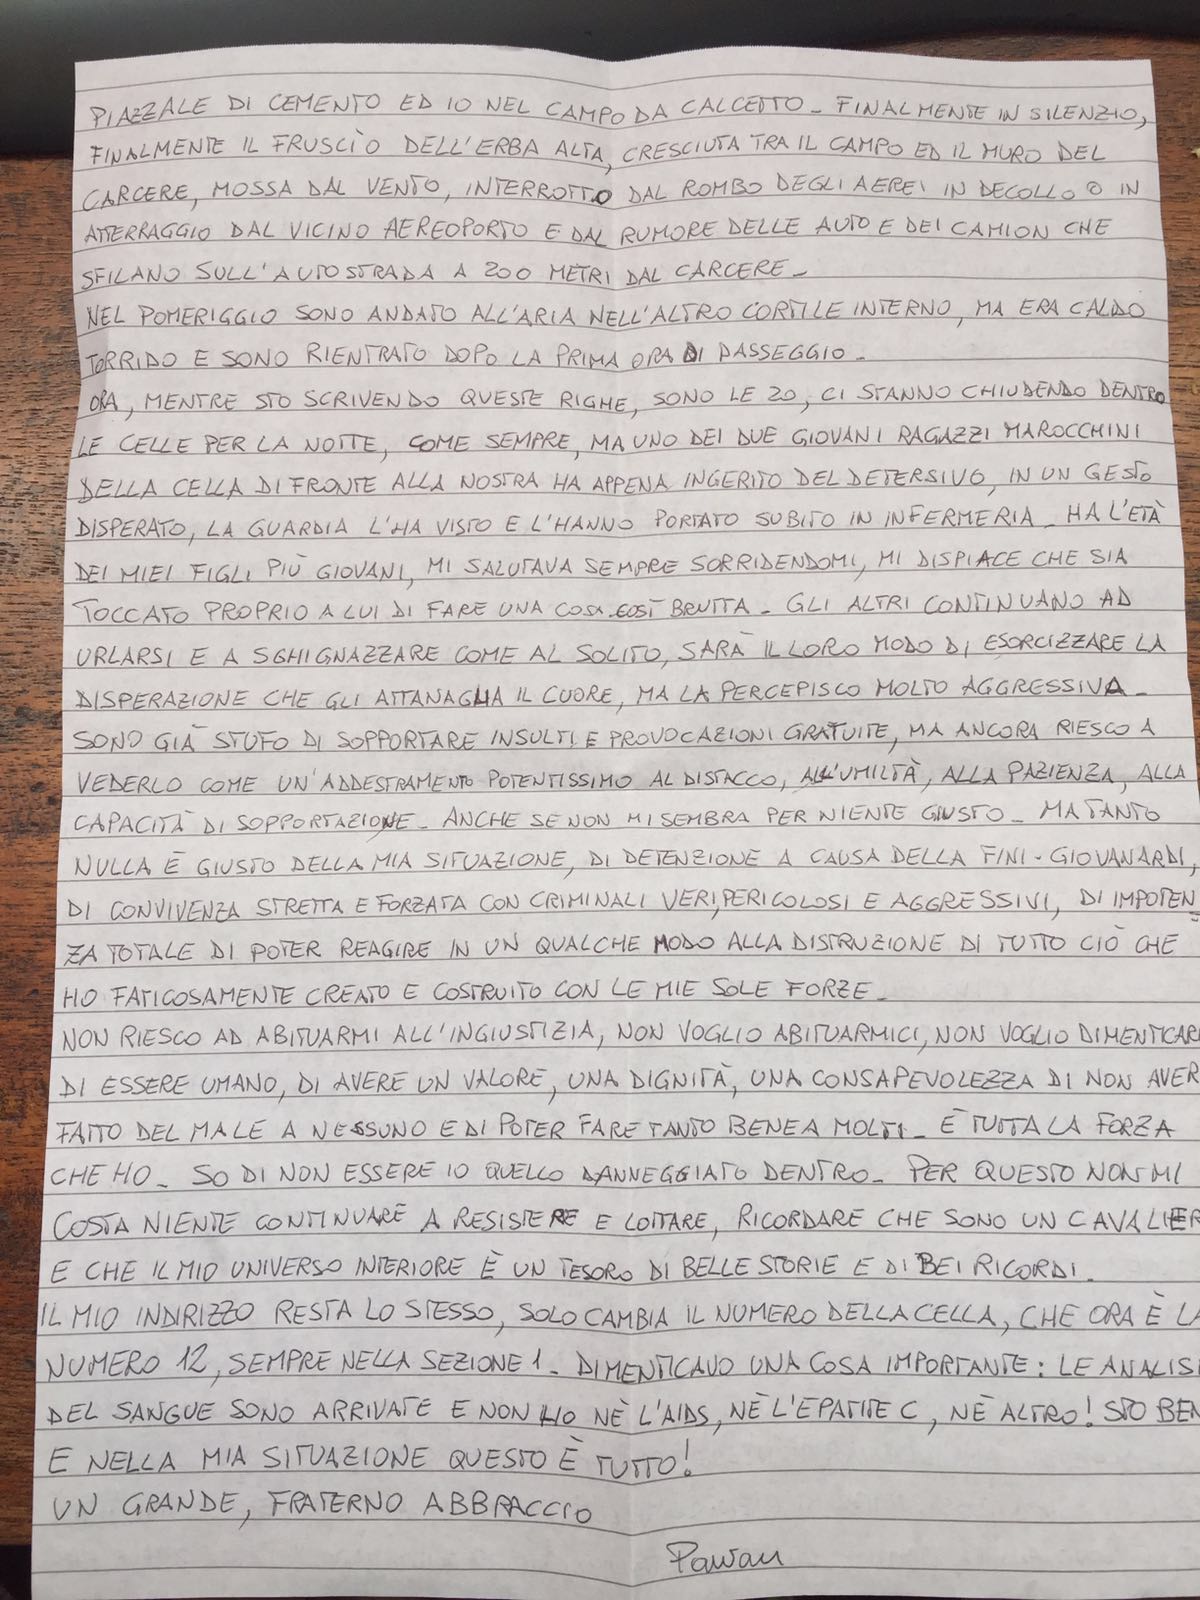 PIAZZALE DI CEMENTO ED IO NEL CAMPO DA CALCETTO_ FINALMENTE IN SILENZIO,
FINALMENTE IL FRUSCÌO DELL'ERBA ALTA, CRESCIUTA TRA IL CAMPO ED IL MURO DEL
CARCERE, MOSSA DAL VENTO, INTERROTTO DAL ROMBO DEGLI AEREI IN DECOLLO O IN
ATTERRAGGIO DAL VICINO AEREOPORTO E DAL RUMORE DELLE AUTO E DEI CAMION CHE
SFILANO SULL'AUTOSTRADA A 200 METRI DAL CARCERE_
NEL POMERIGGIO SONO ANDATO ALL'ARIA NELL'ALTRO CORTILE INTERNO, MA ERA CALDO
TORRIDO E SONO RIENTRATO DOPO LA PRIMA ORA DI PASSEGGIO_
ORA, MENTRE STO SCRIVENDO QUESTE RIGHE, SONO LE 20, CI STANNO CHIUDENDO DENTRO
LE CELLE PER LA NOTTE, COME SEMPRE, MA UNO DEI DUE GIOVANI RAGAZZI MAROCCHINI
DELLA CELLA DI FRONTE ALLA NOSTRA HA APPENA INGERITO DEL DETERSIVO, IN UN GESTO
DISPERATO, LA GUARDIA L'HA VISTO E L'HANNO PORTATO SUBITO IN INFERMERIA_ HA L'ETÀ
DEI MIEI FIGLI PIÙ GIOVANI, MI SALUTAVA SEMPRE SORRIDENDOMI, MI DISPIACE CHE SIA
TOCCATO PROPRIO A LUI DI FARE UNA COSA COSÌ BRUTTA_ GLI ALTRI CONTINUANO AD
URLARSI E A SGHIGNAZZARE COME AL SOLITO, SARÀ IL LORO MODO DI ESORCIZZARE LA
DISPERAZIONE CHE GLI ATTANAGLIA IL CUORE, MA LA PERCEPISCO MOLTO AGGRESSIVA_
SONO GIÀ STUFO DI SOPPORTARE INSULTI E PROVOCAZIONI GRATUITE, MA ANCORA RIESCO A
VEDERLO COME UN'ADDESTRAMENTO POTENTISSIMO AL DISTACCO, ALL'UMILTÀ, ALLA PAZIENZA, ALLA
CAPACITÀ DI SOPPORTAZIONE_ ANCHE SE NON MI SEMBRA PER NIENTE GIUSTO_ MA TANTO
NULLA È GIUSTO DELLA MIA SITUAZIONE, DI DETENZIONE A CAUSA DELLA FINI-GIOVANARDI,
DI CONVIVENZA STRETTA E FORZATA CON CRIMINALI VERI, PERICOLOSI E AGGRESSIVI, DI IMPOTEN
ZA TOTALE DI POTER REAGIRE IN UN QUALCHE MODO ALLA DISTRUZIONE DI TUTTO CIÒ CHE
HO FATICOSAMENTE CREATO E COSTRUITO CON LE MIE SOLE FORZE_
NON RIESCO AD ABITUARMI ALL'INGIUSTIZIA, NON VOGLIO ABITUARMICI, NON VOGLIO DIMENTICAR
DI ESSERE UMANO, DI AVERE UN VALORE, UNA DIGNITÀ, UNA CONSAPEVOLEZZA DI NON AVER
FATTO DEL MALE A NESSUNO E DI POTER FARE TANTO BENE A MOLTI_ È TUTTA LA FORZA
CHE HO_ SO DI NON ESSERE IO QUELLO DANNEGGIATO DENTRO_ PER QUESTO NON MI
COSTA NIENTE CONTINUARE A RESISTERE E LOTTARE, RICORDARE CHE SONO UN CAVALIER
E CHE IL MIO UNIVERSO INTERIORE È UN TESORO DI BELLE STORIE E DI BEI RICORDI_
IL MIO INDIRIZZO RESTA LO STESSO, SOLO CAMBIA IL NUMERO DELLA CELLA, CHE ORA È LA
NUMERO 12, SEMPRE NELLA SEZIONE 1_ DIMENTICAVO UNA COSA IMPORTANTE: LE ANALISI
DEL SANGUE SONO ARRIVATE E NON HO NÈ L'AIDS, NÈ L'EPATITE C, NÈ ALTRO! STO BEN
E NELLA MIA SITUAZIONE QUESTO È TUTTO!
UN GRANDE, FRATERNO ABBRACCIO
Pawan